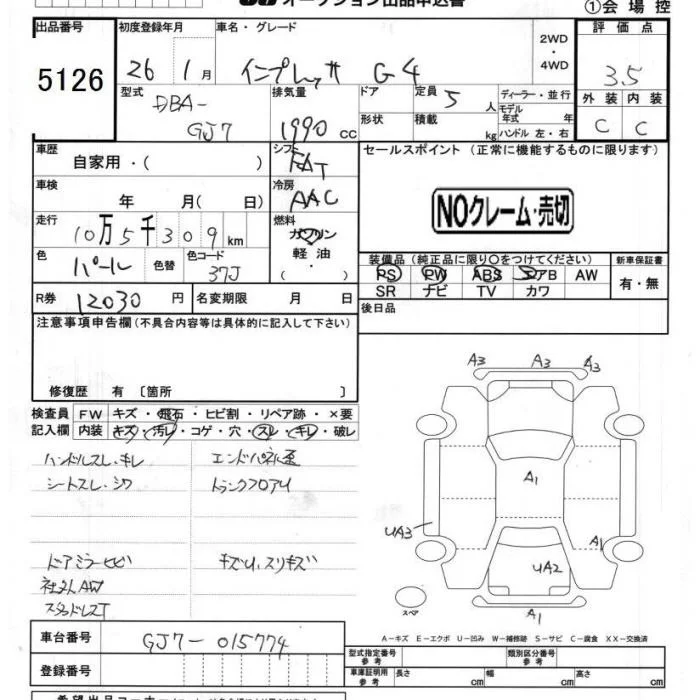 オークション出品申込書
①会場控
出品番号
5126
初度登録年月
26 1月
車名・グレード
インプレッサ G4
2WD
・
4WD
評価点
3.5
外装 内装
C C
型式
DBA-
GJ7
排気量
1990 cc
ドア
形状
定員 5 人
積載 kg
ディーラー・並行
モデル
年式 年
ハンドル 左・右
車歴
自家用・( )
シフト
FAT
車検
年 月(日)
冷房
AAC
走行
10万5千309km
燃料
ガソリン
軽油
・( )・
色
パール
色替
色コード
37J
R券
12030円
名変期限 月 日
セールスポイント (正常に機能するものに限ります)
NOクレーム・売切
装備品(純正品に限り○をつけてください)
PS PW ABS エアB AW
SR ナビ TV カワ
新車保証書
有・無
後日品
注意事項申告欄(不具合内容等は具体的に記入して下さい)
修復歴 有〔箇所 〕
検査員
記入欄
FW キズ・飛石・ヒビ割・リペア跡・×要
内装 キズ・汚レ・コゲ・穴・スレ・キレ・破レ
ハンドルスレ・キレ
エンドパネル歪
シートスレ・シワ
トランクフロアU
ドアミラーヒビ
キズU、スリキズ
社外AW
スタッドレスT
A3 A3 A3
A1
UA3
A1
UA2
A1
スペア
A－キズ E－エクボ U－凹み W－補修跡 S－サビ C－腐食 XX－交換済
車台番号
GJ7-015774
登録番号
型式指定番号
参考
類別区分番号
参考
車庫証明用
参考
長さ cm 幅 cm 高さ cm